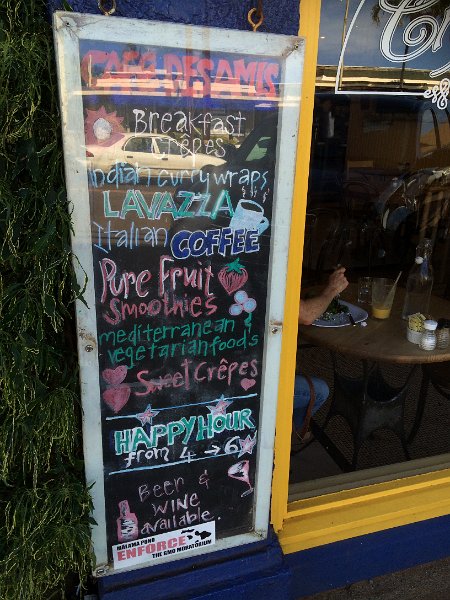 CAFE DES AMIS
Breakfast
Crêpes
indian curry wraps
LAVAZZA
Italian COFFEE
Pure Fruit
Smoothies
mediterranean &
vegetarian foods
Sweet Crêpes
HAPPY HOUR
from 4 → 6
Beer &
WINE
available
MALAMA PONO
ENFORCE
THE GMO MORATORIUM